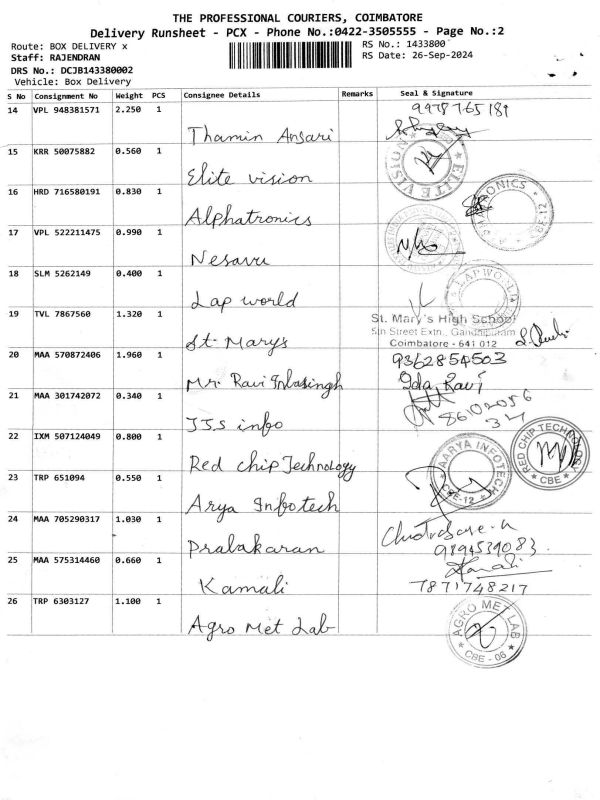 THE PROFESSIONAL COURIERS, COIMBATORE
Delivery Runsheet - PCX - Phone No.:0422-3505555 - Page No.:2
Route: BOX DELIVERY x RS No.: 1433800
Staff: RAJENDRAN RS Date: 26-Sep-2024
DRS No.: DCJB143380002
Vehicle: Box Delivery
S No Consignment No Weight PCS Consignee Details Remarks Seal & Signature
14 VPL 948381571 2.250 1 Thamin Ansari
15 KRR 50075882 0.560 1 Elite vision ELITE VISION
16 HRD 716580191 0.830 1 Alphatronics
17 VPL 522211475 0.990 1 Nesavu
18 SLM 5262149 0.400 1 Lap world LAP WORLD
19 TVL 7867560 1.320 1 St. Marys
St. Mary's High School
5th Street Extn., Gandhipuram
Coimbatore - 641 012
20 MAA 570872406 1.960 1 Mr. Ravi Inbasingh 9362854503
21 MAA 301742072 0.340 1 JJS info
22 IXM 507124049 0.800 1 Red chip Technology RED CHIP TECHNOLOGY * CBE *
23 TRP 651094 0.550 1 Arya Infotech AARYA INFOTECH * CBE-12 *
24 MAA 705290317 1.030 1 Pralakaran 9894539083
25 MAA 575314460 0.660 1 Kamali Kamali 7871748217
26 TRP 6303127 1.100 1 Agro Met Lab AGRO MET LAB * CBE - 06 *